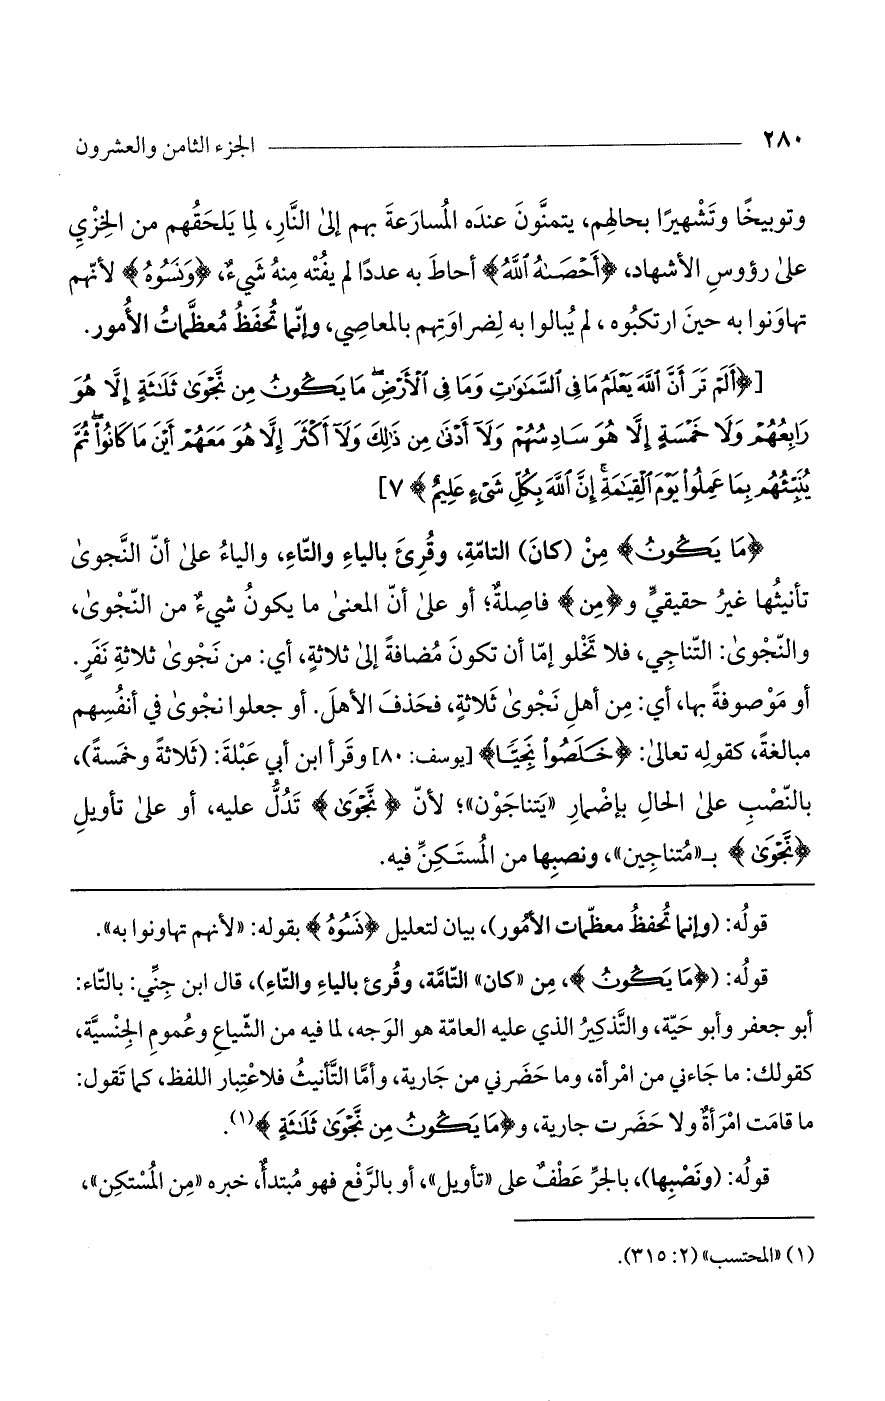 ٢٨٠ الجزء الثامن والعشرون
وتوبيخًا وتَشْهيرًا بحالِهم، يتمنَّونَ عندَه المُسارَعةَ بهم إلىٰ النَّارِ، لِمَا يَلحَقُهم من الخِزْيِ
علىٰ رؤوسِ الأشهاد، ﴿أَحْصَىٰهُ ٱللَّهُ﴾ أحاطَ به عددًا لم يفُتْه مِنهُ شَيءٌ، ﴿وَنَسُوهُ﴾ لأنّهم
تهاوَنوا به حينَ ارتكبُوه، لم يُبالوا به لِضراوَتِهم بالمعاصِي، وإنّما تُحفَظُ مُعظَّماتُ الأُمور.
[﴿أَلَمْ تَرَ أَنَّ ٱللَّهَ يَعْلَمُ مَا فِى ٱلسَّمَٰوَٰتِ وَمَا فِى ٱلْأَرْضِ ۖ مَا يَكُونُ مِن نَّجْوَىٰ ثَلَٰثَةٍ إِلَّا هُوَ
رَابِعُهُمْ وَلَا خَمْسَةٍ إِلَّا هُوَ سَادِسُهُمْ وَلَآ أَدْنَىٰ مِن ذَٰلِكَ وَلَآ أَكْثَرَ إِلَّا هُوَ مَعَهُمْ أَيْنَ مَا كَانُوا۟ ۖ ثُمَّ
يُنَبِّئُهُم بِمَا عَمِلُوا۟ يَوْمَ ٱلْقِيَٰمَةِ ۚ إِنَّ ٱللَّهَ بِكُلِّ شَىْءٍ عَلِيمٌ﴾ ٧]
﴿مَا يَكُونُ﴾ مِنْ (كانَ) التامّةِ، وقُرِئَ بالياءِ والتّاءِ، والياءُ علىٰ أنّ النَّجوىٰ
تأنيثُها غيرُ حقيقيٍّ و﴿مِن﴾ فاصِلةٌ؛ أو علىٰ أنّ المعنىٰ ما يكونُ شيءٌ من النّجْوىٰ،
والنّجْوىٰ: التّناجِي، فلا تَخْلو إمّا أن تكونَ مُضافةً إلىٰ ثلاثةٍ، أي: من نَجْوىٰ ثلاثةِ نَفَرٍ.
أو مَوْصوفةً بها، أي: مِن أهلِ نَجْوىٰ ثَلاثةٍ، فحَذفَ الأهلَ. أو جعلوا نجْوىٰ في أنفُسِهم
مبالغةً، كقولِه تعالىٰ: ﴿خَلَصُوا۟ نَجِيًّا﴾ [يوسف: ٨٠] وقَرأ ابن أبي عَبْلةَ: (ثَلاثةً وخمسةً)،
بالنّصْبِ علىٰ الحالِ بإضْمارِ «يَتناجَوْن»؛ لأنّ ﴿نَّجْوَىٰ﴾ تَدُلُّ عليه، أو علىٰ تأويلِ
﴿نَّجْوَىٰ﴾ بـ«مُتناجِين»، ونصبِها من المُستَكِنِّ فيه.
قولُه: (وإنما تُحفظُ معظّمات الأمُور)، بيان لتعليل ﴿نَسُوهُ﴾ بقوله: «لأنهم تهاونوا به».
قولُه: (﴿مَا يَكُونُ﴾، مِن «كان» التَّامَّة، وقُرئ بالياءِ والتّاءِ)، قال ابن جِنِّي: بالتّاء:
أبو جعفر وأبو حَيّة، والتَّذكِيرُ الذي عليه العامّة هو الوَجه، لما فيه من الشّياعِ وعُمومِ الجِنْسيَّة،
كقولك: ما جَاءني من امْرأة، وما حَضَرني من جَارية، وأمَّا التَّأنيثُ فلاعْتِبار اللفظ، كما تَقول:
ما قامَت امْرَأةٌ ولا حَضَرت جارية، و﴿مَا يَكُونُ مِن نَّجْوَىٰ ثَلَٰثَةٍ﴾(١).
قولُه: (ونَصْبِها)، بالجرِّ عَطْفٌ على «تأويل»، أو بالرَّفْع فهو مُبتدأٌ، خبره «مِن المُسْتكِن»،
(١) «المحتسب» (٢: ٣١٥).